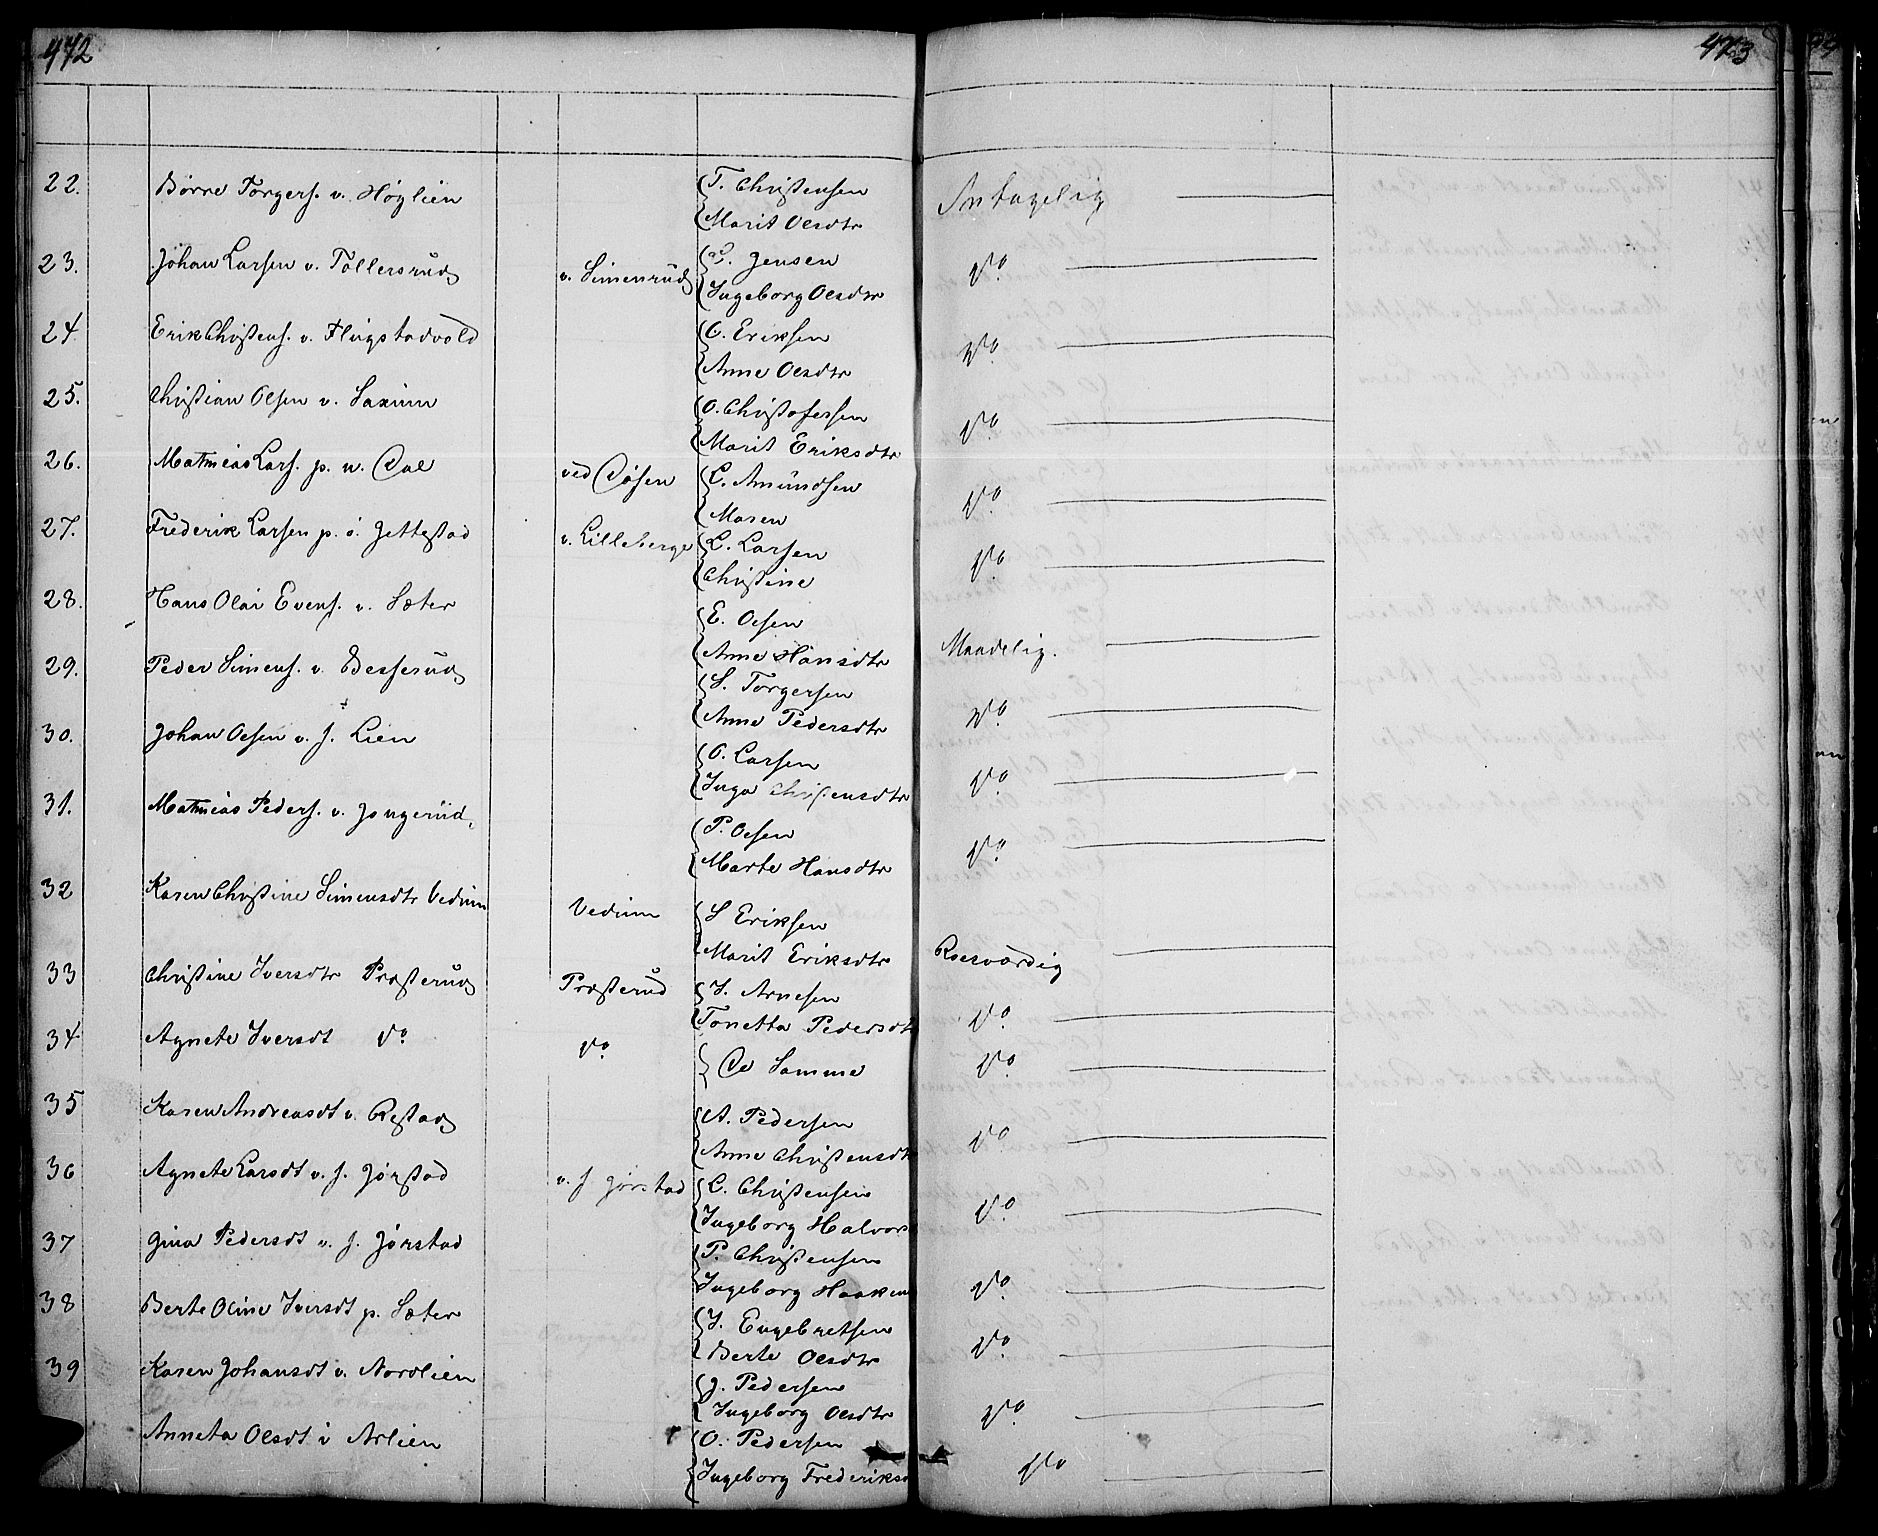 472
473
22. Börre Torgers. v. Höglien {T. Christensen Antagelig
{Marit Olsdtr
23. Johan Larsen v. Tollersrud v. Simenrud {L. Jensen Do
{Ingeborg Olsdtr
24. Erik Christens. v. Flugstadvold {C. Eriksen Do
{Anne Olsdtr
25. Christian Olsen v. Saxum {O. Christofersen Do
{Marit Eriksdtr
26. Mathias Lars. p. n. Dal ved Døsen {L. Amundsen Do
{Maren
27. Frederik Larsen p. ö. Jettestad v. Lilleberge {L. Larsen Do
{Christine
28. Hans Olai Evens. v. Sæter {E. Olsen Maadelig.
{Anne Hansdtr
29. Peder Simens. v. Besserud {S. Torgersen Do
{Anne Pedersdtr
30. Johan Olsen v. s. Lien {O. Larsen Do
{Inga Christensdtr
31. Mathias Peders. v. Jongerud, {P. Olsen Do
{Marte Hansdtr
32 Karen Christine Simensdtr Vedum Vedum {S Eriksen Roesværdig
{Marit Eriksdtr
33 Christine Iversdtr Præsterud Præsterud {I. Arnesen Do
{Tonetta Pedersdtr
34 Agnete Iversdt Do Do {De Samme Do
35 Karen Andreasdt v. Restad {A. Pedersen Do
{Anne Christensdt
36 Agnete Larsdt v. s. Jørstad v. s Jørstad {L. Christensen Do
{Ingeborg Halvors
37 Gina Pedersdt v. s. Jørstad {P. Christensen Do
{Ingeborg Haakens
38 Berte Oline Iversdt p. Sæter {I. Engebretsen Do
{Berte Olsdtr
39 Karen Johansdt v. Nordlien {J. Pedersen Do
{Ingeborg Olsdtr
Anneta Olsdt v Arlien {O. Pedersen Do
{Ingeborg Frederiksd